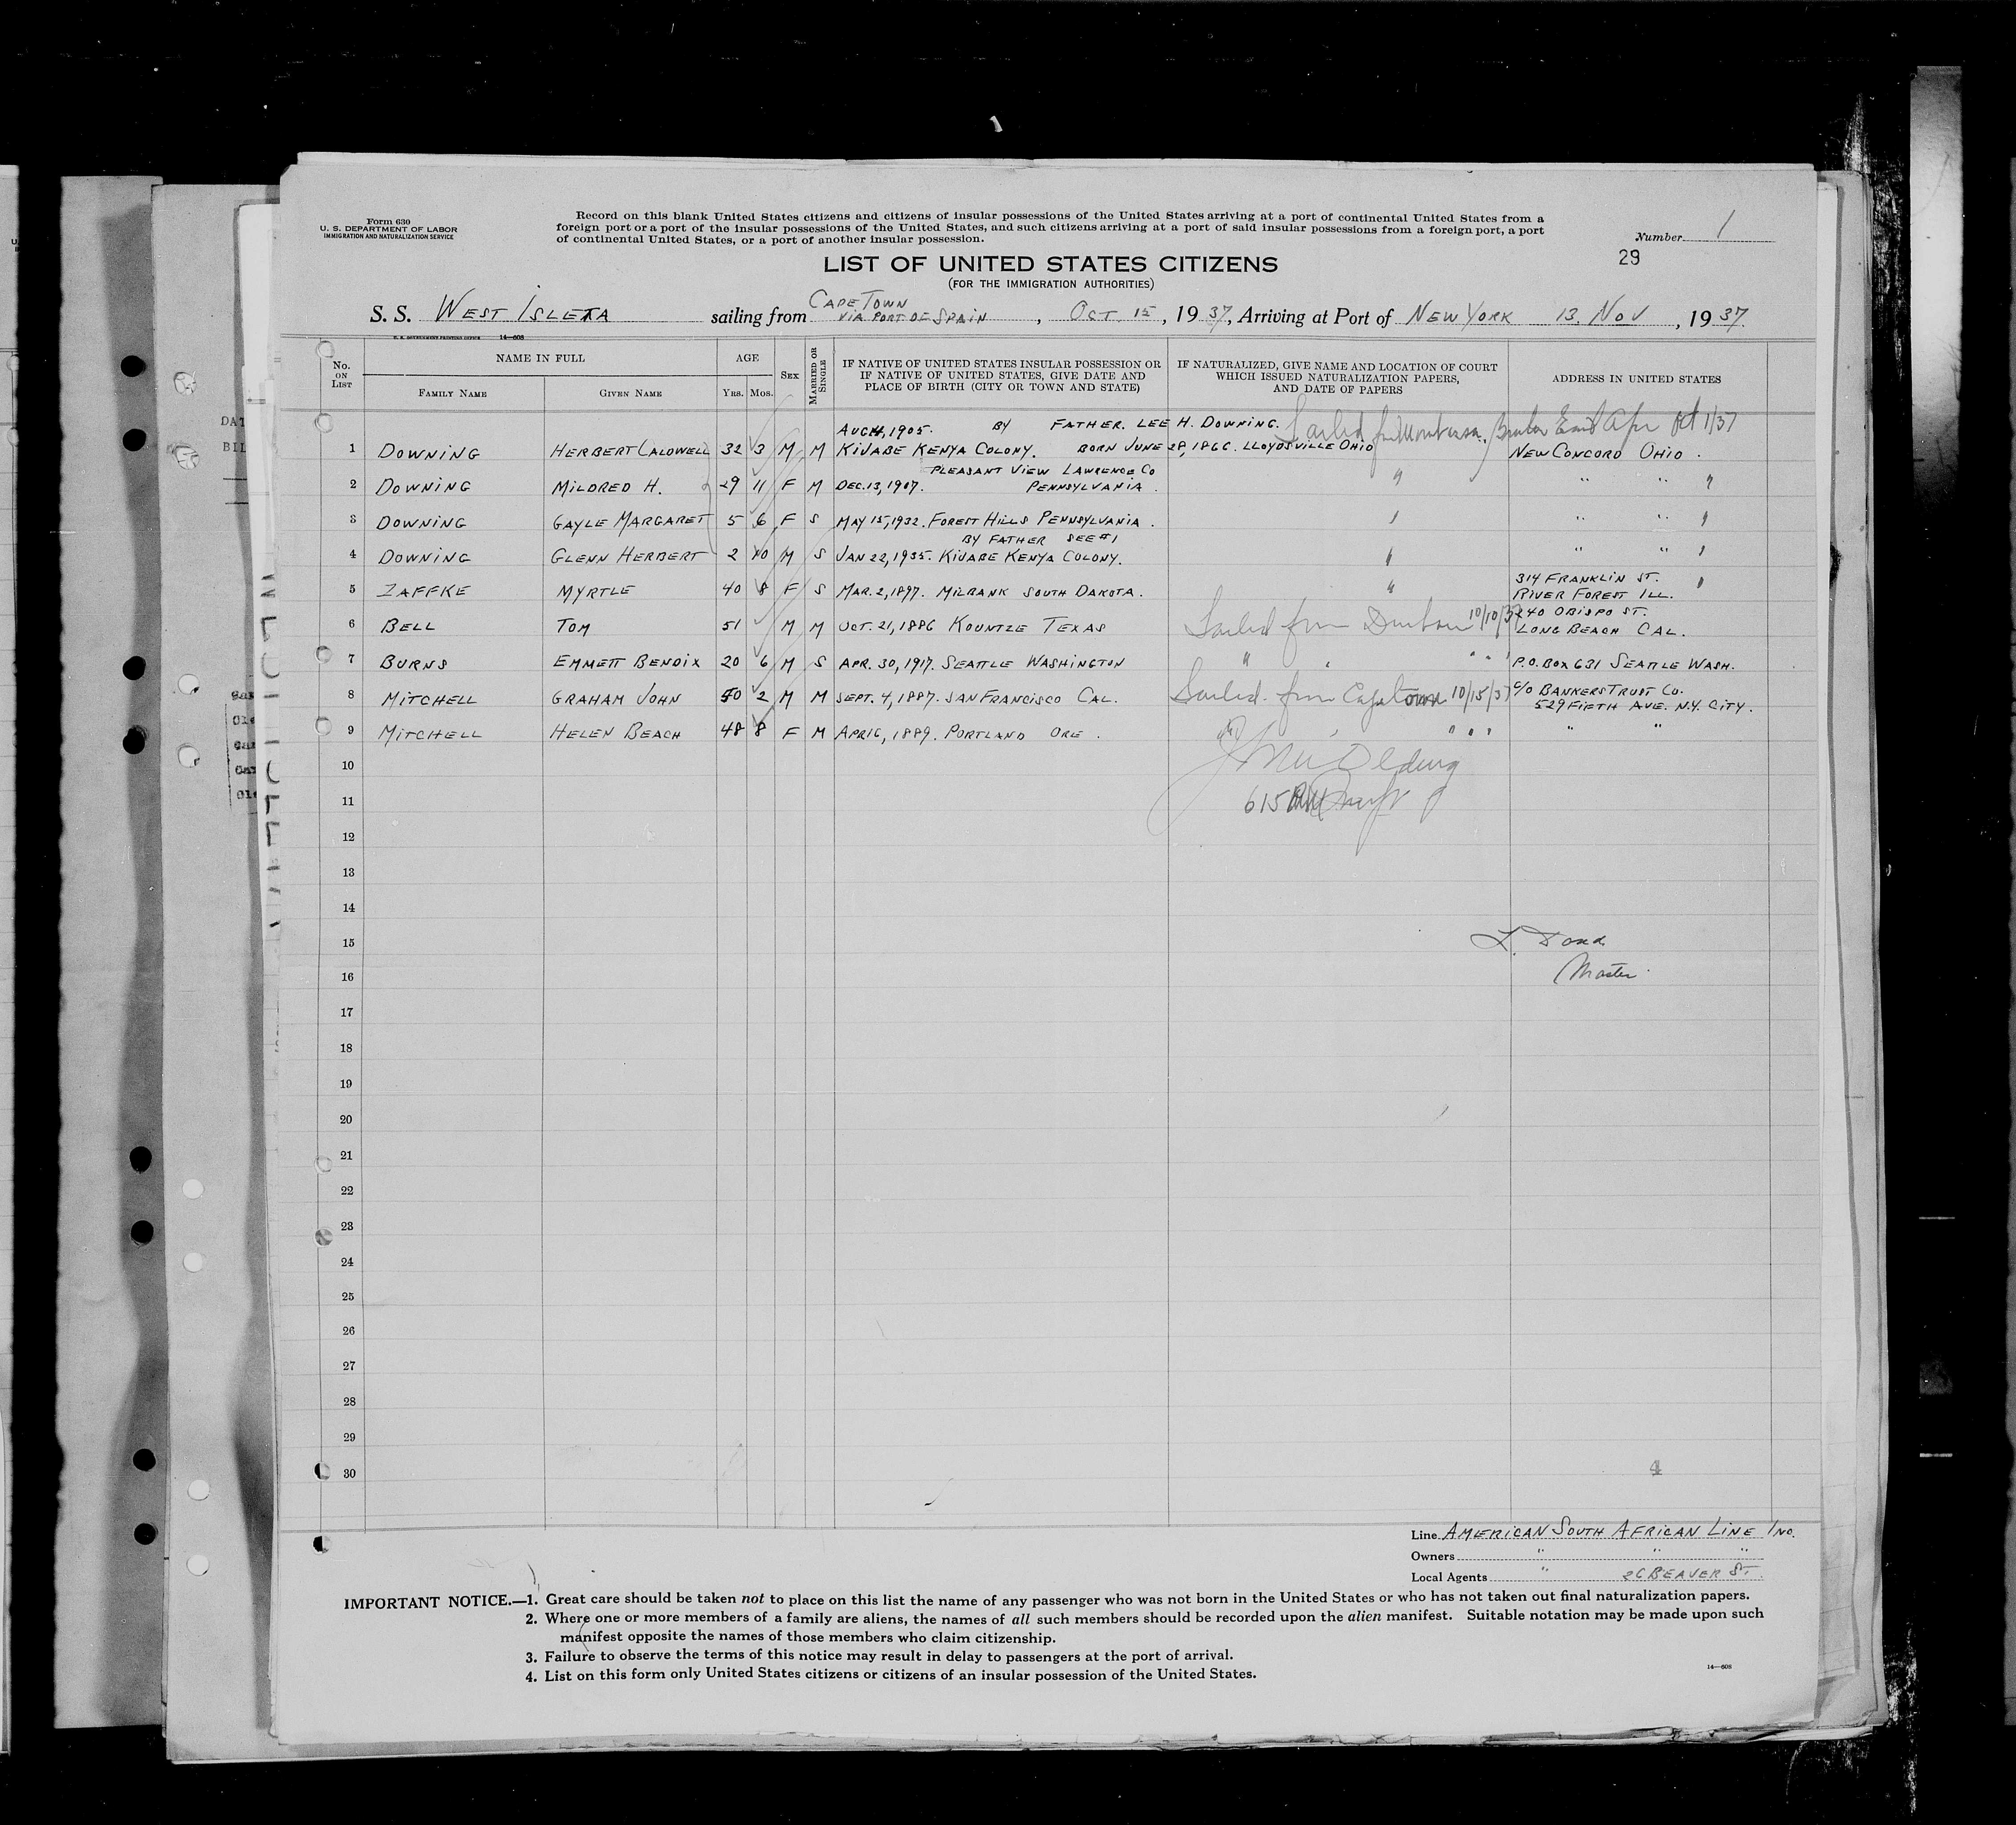 Form 630
U. S. DEPARTMENT OF LABOR
IMMIGRATION AND NATURALIZATION SERVICE
Record on this blank United States citizens and citizens of insular possessions of the United States arriving at a port of continental United States from a
foreign port or a port of the insular possessions of the United States, and such citizens arriving at a port of said insular possessions from a foreign port, a port
of continental United States, or a port of another insular possession.
Number 1
29
LIST OF UNITED STATES CITIZENS
(FOR THE IMMIGRATION AUTHORITIES)
S. S. WEST ISLETA sailing from CAPE TOWN VIA PORT OF SPAIN, OCT. 15, 1937, Arriving at Port of NEW YORK 13. NOV, 1937.
U. S. GOVERNMENT PRINTING OFFICE 14—608
No. ON LIST
NAME IN FULL
FAMILY NAME
GIVEN NAME
AGE
YRS. MOS.
SEX
MARRIED OR SINGLE
IF NATIVE OF UNITED STATES INSULAR POSSESSION OR
IF NATIVE OF UNITED STATES, GIVE DATE AND
PLACE OF BIRTH (CITY OR TOWN AND STATE)
IF NATURALIZED, GIVE NAME AND LOCATION OF COURT
WHICH ISSUED NATURALIZATION PAPERS,
AND DATE OF PAPERS
ADDRESS IN UNITED STATES
1905. BY FATHER. LEE H. DOWNING. Sailed Oct 1/37
1 DOWNING HERBERT CALDWELL 32 3 M M KIJABE KENYA COLONY. BORN JUNE 28, 1866. LLOYDSVILLE OHIO NEW CONCORD OHIO.
PLEASANT VIEW LAWRENCE CO
2 DOWNING MILDRED H. 29 11 F M DEC. 13, 1907. PENNSYLVANIA. " " " "
3 DOWNING GAYLE MARGARET 5 6 F S MAY 15, 1932. FOREST HILLS PENNSYLVANIA. " " " "
BY FATHER SEE #1
4 DOWNING GLENN HERBERT 2 10 M S JAN 22, 1935. KIJABE KENYA COLONY. " " " "
314 FRANKLIN ST. "
5 ZAFFKE MYRTLE 40 8 F S MAR. 2, 1897. MILBANK SOUTH DAKOTA. " RIVER FOREST ILL.
240 OBISPO ST.
6 BELL TOM 51 M M OCT. 21, 1886 KOUNTZE TEXAS Sailed from Durban 10/10/37 LONG BEACH CAL.
7 BURNS EMMETT BENDIX 20 6 M S APR. 30, 1917. SEATTLE WASHINGTON " " " " " P.O. BOX 631 SEATTLE WASH.
8 MITCHELL GRAHAM JOHN 50 2 M M SEPT. 4, 1887. SAN FRANCISCO CAL. Sailed from Capetown 10/15/37 C/O BANKERS TRUST CO.
529 FIFTH AVE. N.Y. CITY.
9 MITCHELL HELEN BEACH 48 8 F M APR 16, 1889. PORTLAND ORE. " " " " " " "
10
11 615
12
13
14
15 L.
16 Master
17
18
19
20
21
22
23
24
25
26
27
28
29
30 4
Line AMERICAN SOUTH AFRICAN LINE INC.
Owners " " "
Local Agents " 26 BEAVER ST.
IMPORTANT NOTICE.—1. Great care should be taken not to place on this list the name of any passenger who was not born in the United States or who has not taken out final naturalization papers.
2. Where one or more members of a family are aliens, the names of all such members should be recorded upon the alien manifest. Suitable notation may be made upon such
manifest opposite the names of those members who claim citizenship.
3. Failure to observe the terms of this notice may result in delay to passengers at the port of arrival.
4. List on this form only United States citizens or citizens of an insular possession of the United States.
14—608